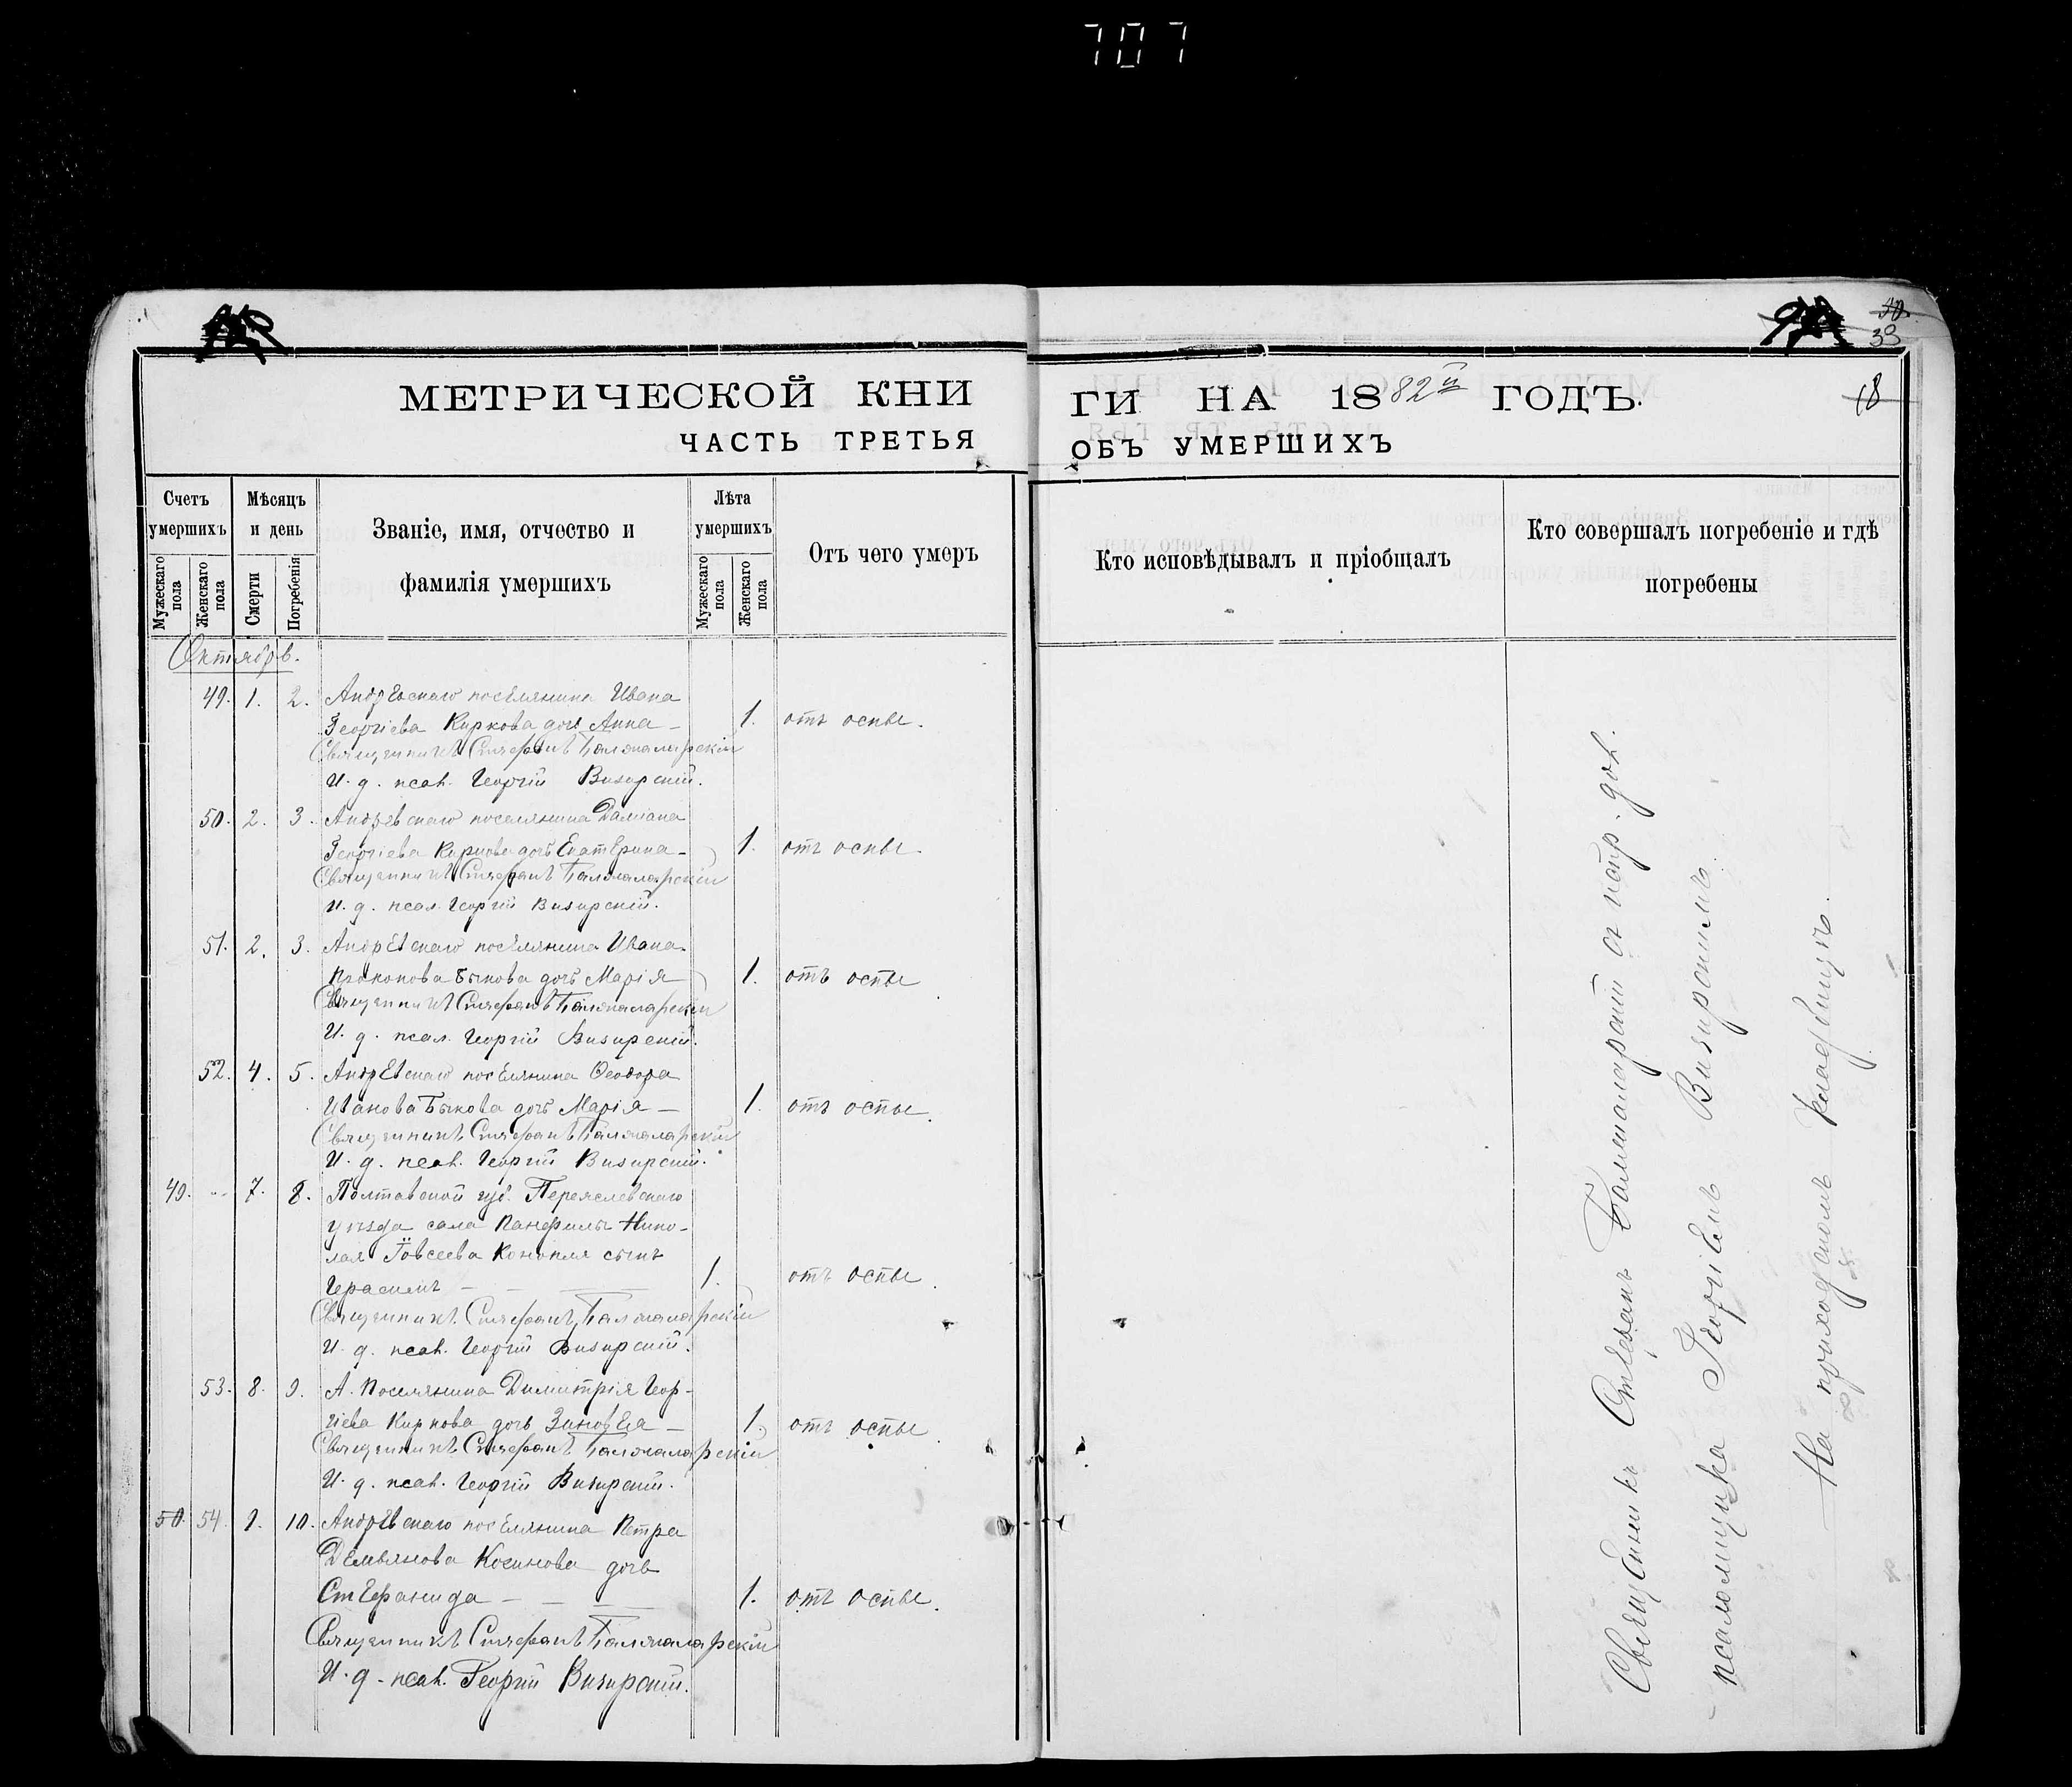 707
30.
33
МЕТРИЧЕСКОЙ КНИ
ГИ НА 1882й ГОДЪ.
18
ЧАСТЬ ТРЕТЬЯ
ОБЪ УМЕРШИХЪ
Счетъ умершихъ
Мужескаго пола
Женскаго пола
Мѣсяцъ и день
Смерти
Погребенія
Званіе, имя, отчество и
фамилія умершихъ
Лѣта умершихъ
Мужескаго пола
Женскаго пола
Отъ чего умеръ
Кто исповѣдывалъ и пріобщалъ
Кто совершалъ погребеніе и гдѣ
погребены
Октябрь.
49. 1. 2. Андревскаго поселянина Ивана
Георгіева Киркова дочь Анна – 1. отъ оспы.
Священникъ Стефанъ Балжаларскій
И. д. псал. Георгій Визирскій.
50. 2. 3. Андревскаго поселянина Даміана
Георгіева Киркова дочь Екатерина – 1. отъ оспы.
Священникъ Стефанъ Балжаларскій
И. д. псал. Георгій Визирскій.
51. 2. 3. Андревскаго поселянина Ивана
Прокопова Быкова дочь Марія 1. отъ оспы
Священникъ Стефанъ Балжаларскій
И. д. псал. Георгій Визирскій.
52. 4. 5. Андревскаго поселянина Ѳеодора
Иванова Быкова дочь Марія – 1. отъ оспы.
Священникъ Стефанъ Балжаларскій
И. д. псал. Георгій Визирскій.
49. 7. 8. Полтавской губ. Переяслевскаго
уѣзда села Панфилы Нико-
лая Іовсеева Конопля сынъ
Герасимъ – 1. отъ оспы.
Священникъ Стефанъ Балжаларскій
И. д. псал. Георгій Визирскій.
53. 8. 9. А. Поселянина Димитрія Геор-
гіева Киркова дочь Зиновея – 1. отъ оспы.
Священникъ Стефанъ Балжаларскій
И. д. псал. Георгій Визирскій.
50. 54. 9. 10. Андревскаго поселянина Петра
Демьянова Косинова дочь
Стефанида – – 1. отъ оспы.
Священникъ Стефанъ Балжаларскій
И. д. псал. Георгій Визирскій.
Священникъ Стефанъ Балжаларскій съ испр. дол.
псаломщика Георгіемъ Визирскимъ.
На приходскомъ кладбищѣ.